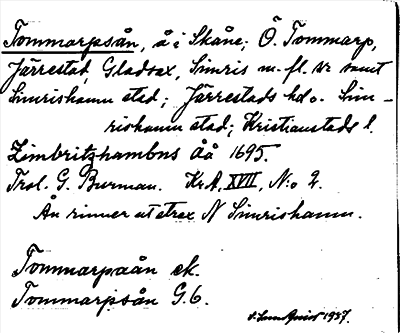 Tommarpsån, å i Skåne; Ö. Tommarp,
Järrestad, Gladsax, Simris m. fl. snr samt
Simrishamn stad; Järrestads hd o. Sim-
rishamn stad; Kristianstads l.
Zimbritzhambns Åå 1695.
Trol. G. Burman. Kr.A, XVII, N:o 2.
Ån rinner ut strax N Simrishamn.
Tommarpaån ek.
Tommarpsån G.6.
1937.